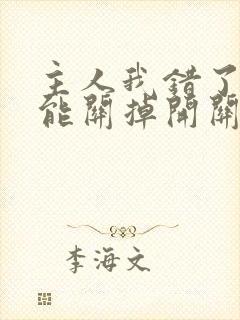 主人我错了
能關掉開關
李海文